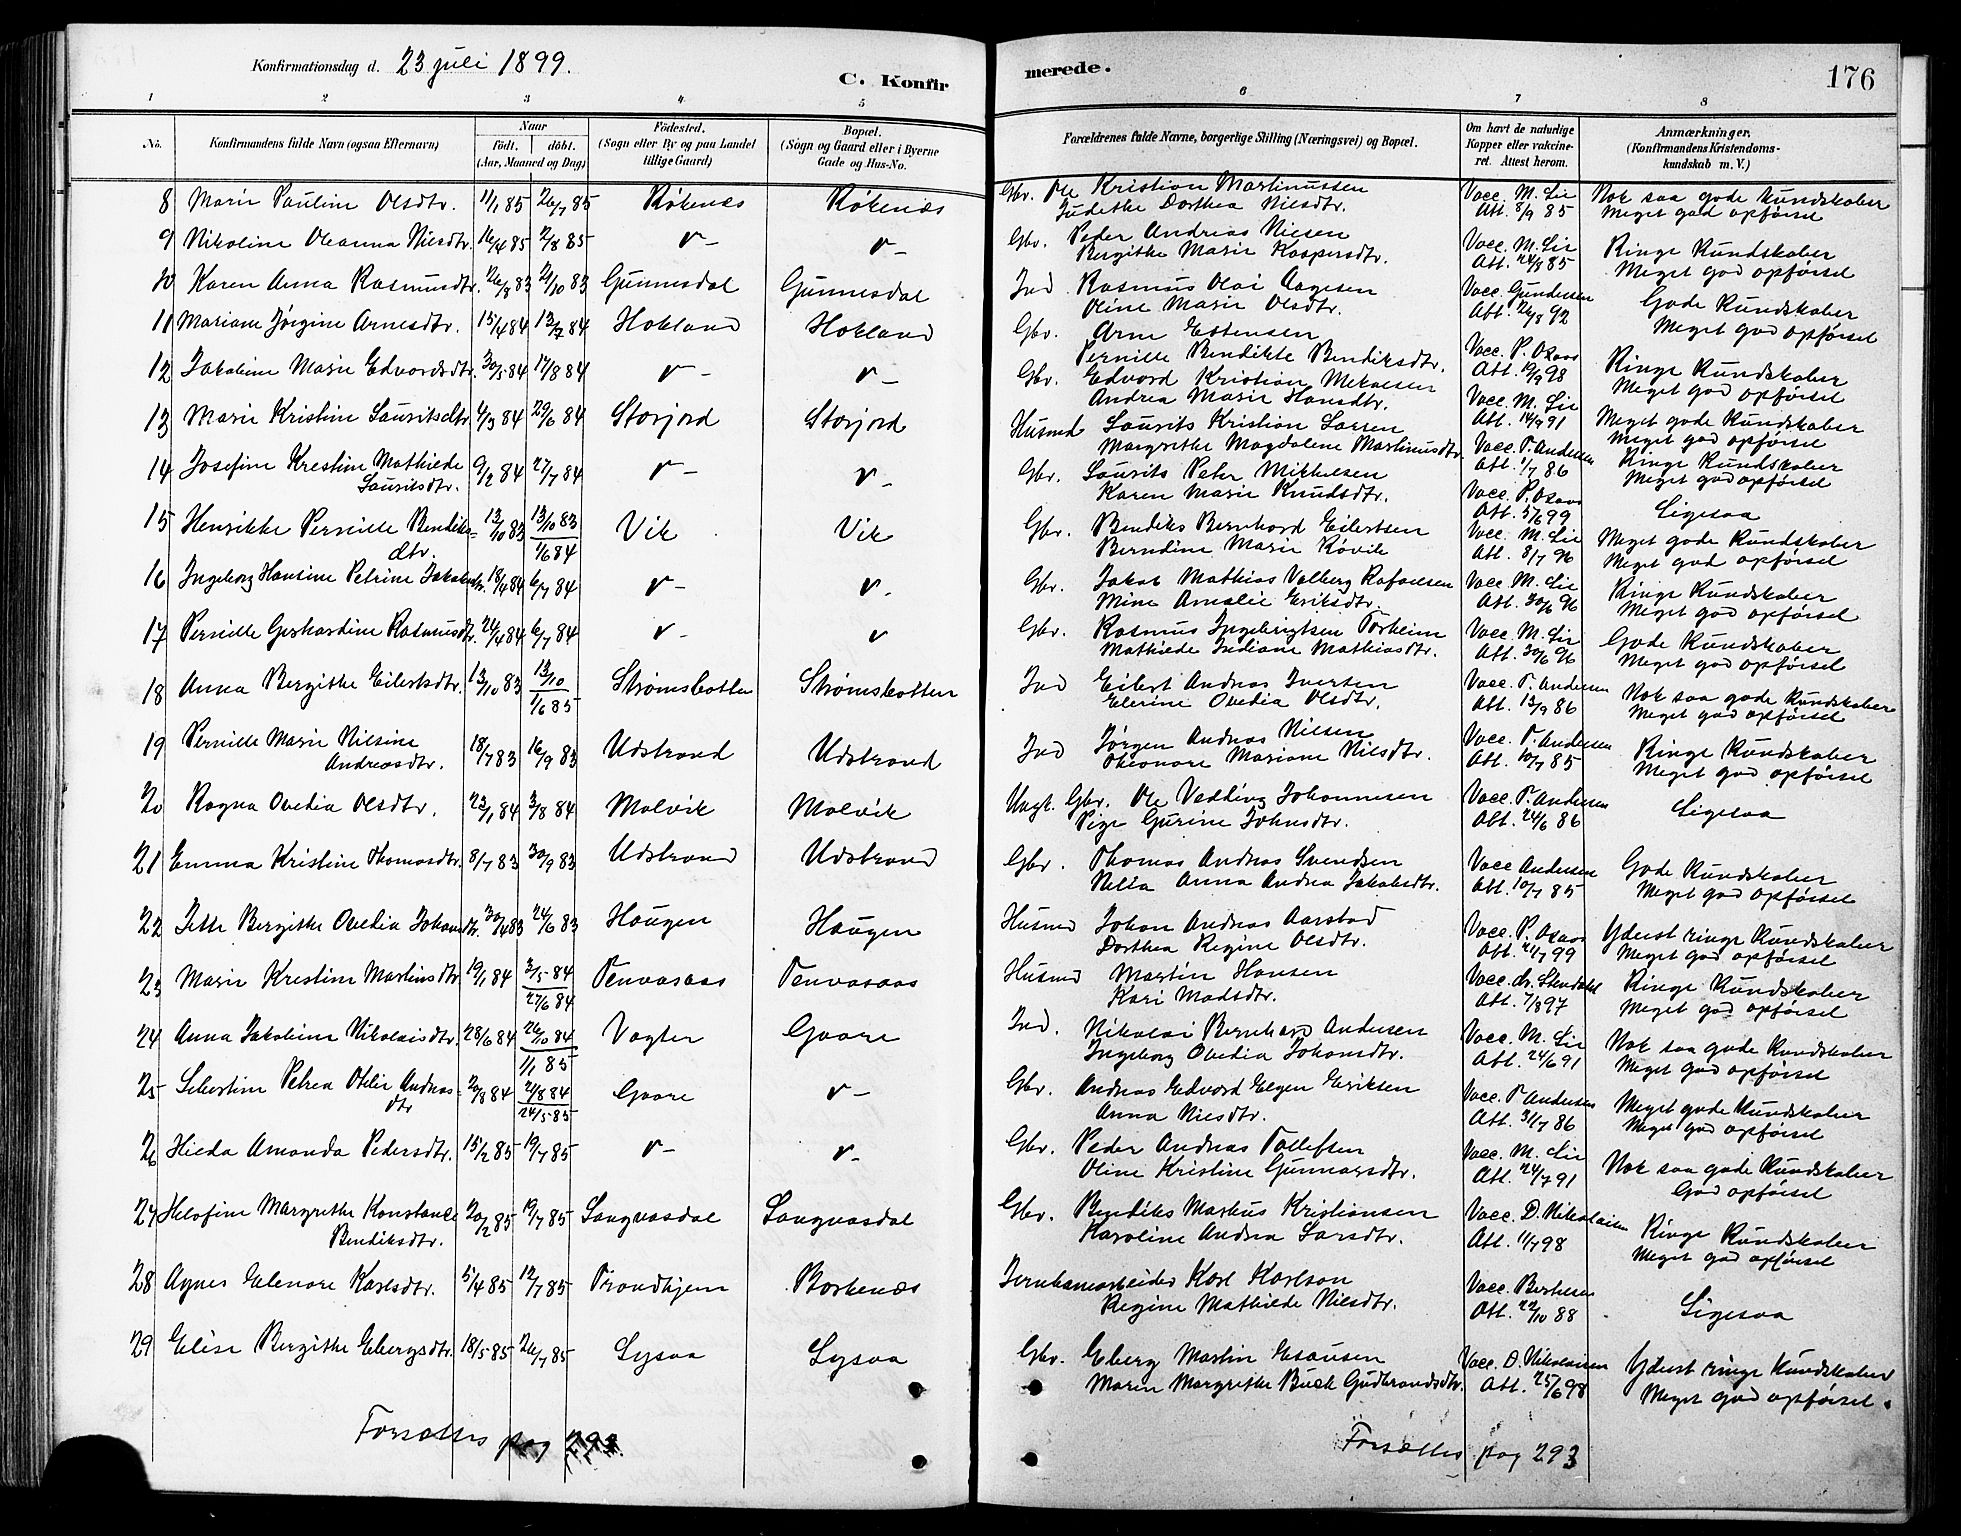 Konfirmationsdag d. 23 juli 1899.
C. Konfirmerede.
176
1 2 3 4 5 6 7 8
No. Konfirmandens fulde Navn (ogsaa Efternavn) Naar födt. döbt. (Aar, Maaned og Dag) Födested. (Sogn eller By og paa Landet tillige Gaard) Bopæl. (Sogn og Gaard eller i Byerne Gade og Hus-No. Forældrenes fulde Navne, borgerlige Stilling (Næringsvei) og Bopæl. Om havt de naturlige Kopper eller vakcineret. Attest herom. Anmærkninger. (Konfirmandens Kristendomskundskab m. V.)
8 Marie Pauline Olsdtr. 11/1 85 26/7 85 Røkenes Røkenes Gbr. Ole Kristian Martinussen Vacc. M. Lie Nok saa gode Kundskaber
Judethe Dorthea Nilsdtr. Att. 8/9 85 Meget god opførsel
9 Nikoline Oleanna Nilsdtr. 16/4 85 2/8 85 v- v- Gbr. Peder Andreas Nilsen Vacc. M. Lie Ringe Kundskaber
Bergithe Marie Kaspersdtr. Att. 24/8 85 Meget god opførsel
10 Karen Anna Rasmusdtr. 26/8 83 21/10 83 Gunnesdal Gunnesdal Ind Rasmus Olai Aagesen Vacc. Gundersen Gode Kundskaber
Oline Marie Olsdtr. Att. 26/8 92 Meget god opførsel
11 Mariane Jørgine Arnesdtr. 15/4 84 13/7 84 Hokland Hokland Gbr. Arne Estensen Vacc. P. Isaas Ringe Kundskaber
Pernille Bendikte Bendiksdtr. Att. 19/9 98 Meget god opførsel
12 Jakobine Marie Edvardsdtr. 30/5 84 17/8 84 v- v- Gbr. Edvard Kristian Mikalsen Vacc. M. Lie Meget gode Kundskaber
Andrea Marie Hansdtr. Att. 14/9 91 Meget god opførsel
13 Marie Kristine Lauritsdtr. 4/3 84 29/6 84 Storjord Storjord Husmd Laurits Kristian Larsen Vacc. T. Andersen Ringe Kundskaber
Margrethe Magdalene Martinusdtr. Att. 1/7 86 Meget god opførsel
14 Josefine Krestine Mathilde 9/2 84 27/7 84 v- v- Gbr. Laurits Peter Mikkelsen Vacc. P. Isaas Ligesaa
Lauritsdtr. Karen Marie Knudsdtr. Att. 5/6 99
15 Henrikke Pernille Bendiks= 13/10 83 13/10 83 Vik Vik Gbr. Bendiks Bernhard Eilertsen Vacc. M. Lie Meget gode Kundskaber
dtr. 1/6 84 Berndine Marie Røvik Att. 8/7 96 Meget god opførsel
16 Ingeborg Hansine Petrine Jakobsdtr. 18/4 84 6/7 84 v- v- Gbr. Jakob Mathias Valberg Rafaelsen Vacc. M. Lie Ringe Kundskaber
Mine Amalie Eriksdtr. Att. 30/6 96 Meget god opførsel
17 Pernille Gerhardine Rasmusdtr. 24/4 84 6/7 84 v- v Gbr. Rasmus Ingebrigtsen Torheim Vacc. M. Lie Gode Kundskaber
Mathilde Indiane Mathiasdtr. Att. 30/6 96 Meget god opførsel
18 Anna Bergithe Eilertsdtr. 13/10 83 13/10 Strømsbotten Strømsbotten Ind Eilert Andreas Iversen Vacc. T. Andersen Nok saa gode Kundskaber
1/6 85 Elerine Ovedia Olsdtr. Att. 13/9 86 Meget god opførsel
19 Pernille Marie Nilsine 18/7 83 16/9 83 Udstrand Udstrand Ind Jørgen Andreas Nilsen Vacc. T. Andersen Ringe Kundskaber
Andreasdtr. Oleonore Mariane Nilsdtr. Att. 10/7 85 Meget god opførsel
20 Ragna Ovedia Olsdtr. 23/1 84 3/8 84 Molvik Molvik Ungk. Gbr. Ole Vedding Johannesen Vacc. T. Andersen Ligesaa
Pige Gurine Johnsdtr. Att. 24/6 86
21 Emma Kristine Thomasdtr. 8/7 83 30/9 83 Udstrand Udstrand Gbr. Thomas Andreas Svendsen Vacc Andersen Gode Kundskaber
Nella Anna Andrea Jakobsdtr. Att. 10/7 85 Meget god opførsel
22 Jette Bergithe Ovedia Johansdtr. 30/4 83 24/6 83 Haugen Haugen Husmd Johan Andreas Aarstad Vacc. P. Isaas Yderst ringe Kundskaber
Dorthea Regine Olsdtr. Att. 21/7 99 Meget god opførsel
23 Marie Krestine Martinsdtr 19/1 84 3/5 84 Tenvasaas Tenvasaas Husmd Martin Hansen Vacc. dr. Stendahl Ringe Kundskaber
27/6 84 Kari Madsdtr. Att. 7/8 97 Meget god opførsel
24 Anna Jakobine Nikolaisdtr. 28/6 84 26/10 84 Vagter Gaare Ind. Nikolai Bernhard Andersen Vacc. M. Lie Nok saa gode Kundskaber
1/1 85 Ingeborg Ovedia Johansdtr. Att. 24/6 91 Meget god opførsel
25 Sebertine Petrea Otelie Andreas= 20/8 84 21/8 84 Gaare v- Gbr. Andreas Edvard Elgen Eriksen Vacc. T Andersen Meget gode Kundskaber
dtr 24/5 85 Anna Nilsdtr. Att. 31/7 86 Meget god opførsel
26 Hilda Amanda Pedersdtr. 15/2 85 19/7 85 v- v- Gbr. Peder Andreas Tollefsen Vacc. M. Lie Nok saa gode Kundskaber
Oline Kristine Gunnarsdtr. Att. 24/7 91 God opførsel
27 Helofine Margrethe Konstance 20/2 85 19/7 85 Langvasdal Langvasdal Gbr. Bendiks Markus Kristiansen Vacc. D. Nikolaisen Ringe Kundskaber
Bendiksdtr. Karoline Andrea Larsdtr. Att. 11/7 98 Meget god opførsel
28 Agnes Elenore Karlsdtr. 5/4 85 12/7 85 Trondhjem Borkenes Jernbanearbeider Karl Karlson Vacc. Berthesen Ligesaa
Regine Mathilde Nilsdtr. Att. 22/10 88
29 Elise Bergithe Ebergsdtr. 18/5 85 26/7 85 Lysaa Lysaa Gbr. Eberg Martin Esausen Vacc. D. Nikolaisen Yderst ringe Kundskaber
Maren Margrethe Buck Gudbrandsdtr. Att. 25/6 98 Meget god opførsel.
Forsættes pag 293
Forsættes pag 293